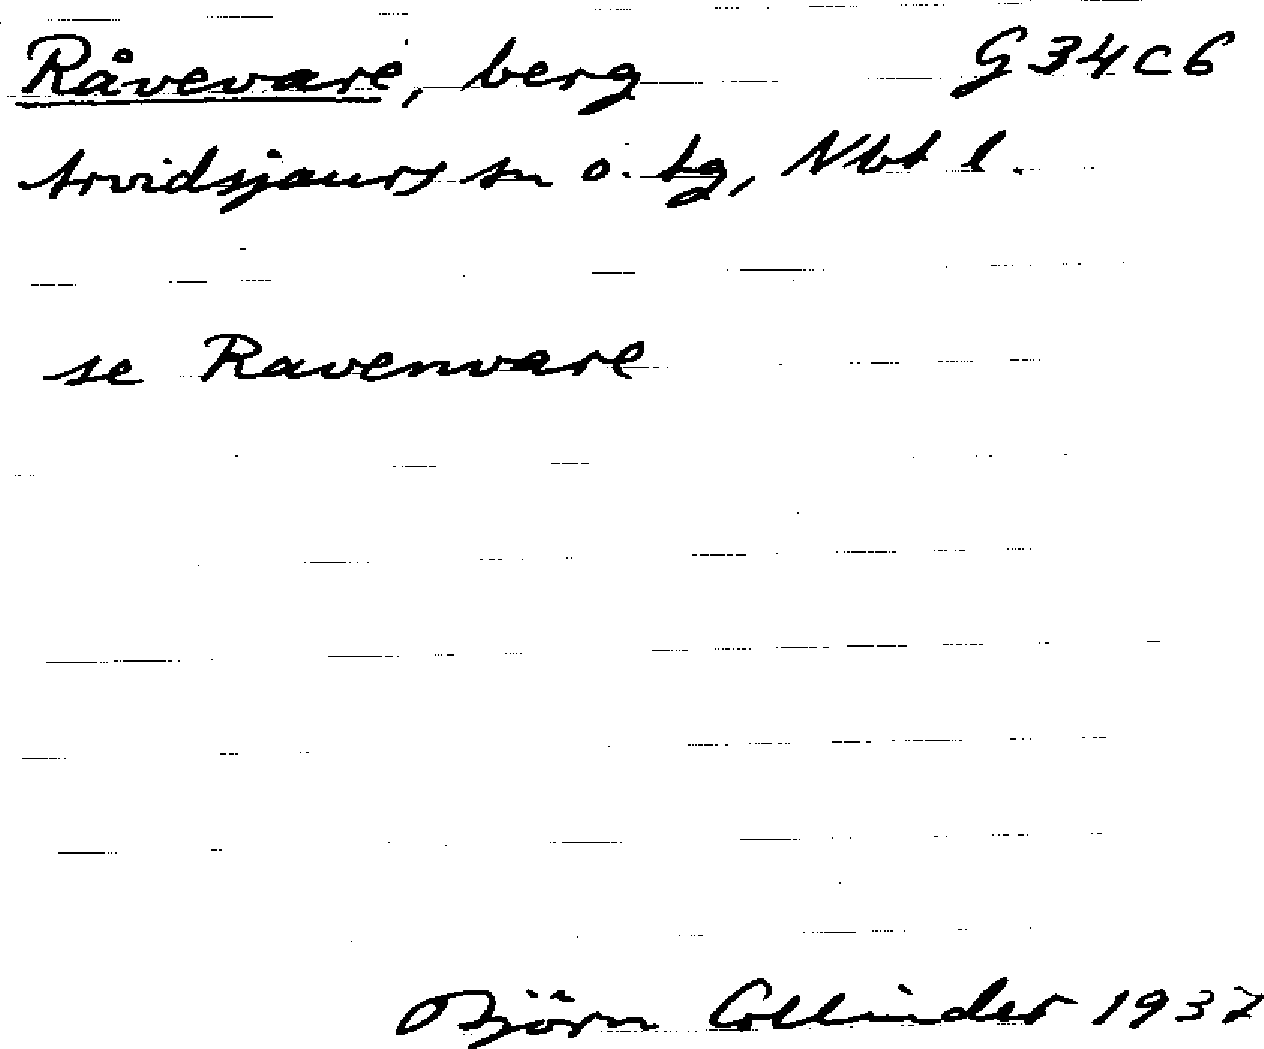 Råvevare, berg G34C6
Arvidsjaurs sn o. tg, Nbt l.
se Ravenvare
Björn Collinder 1937